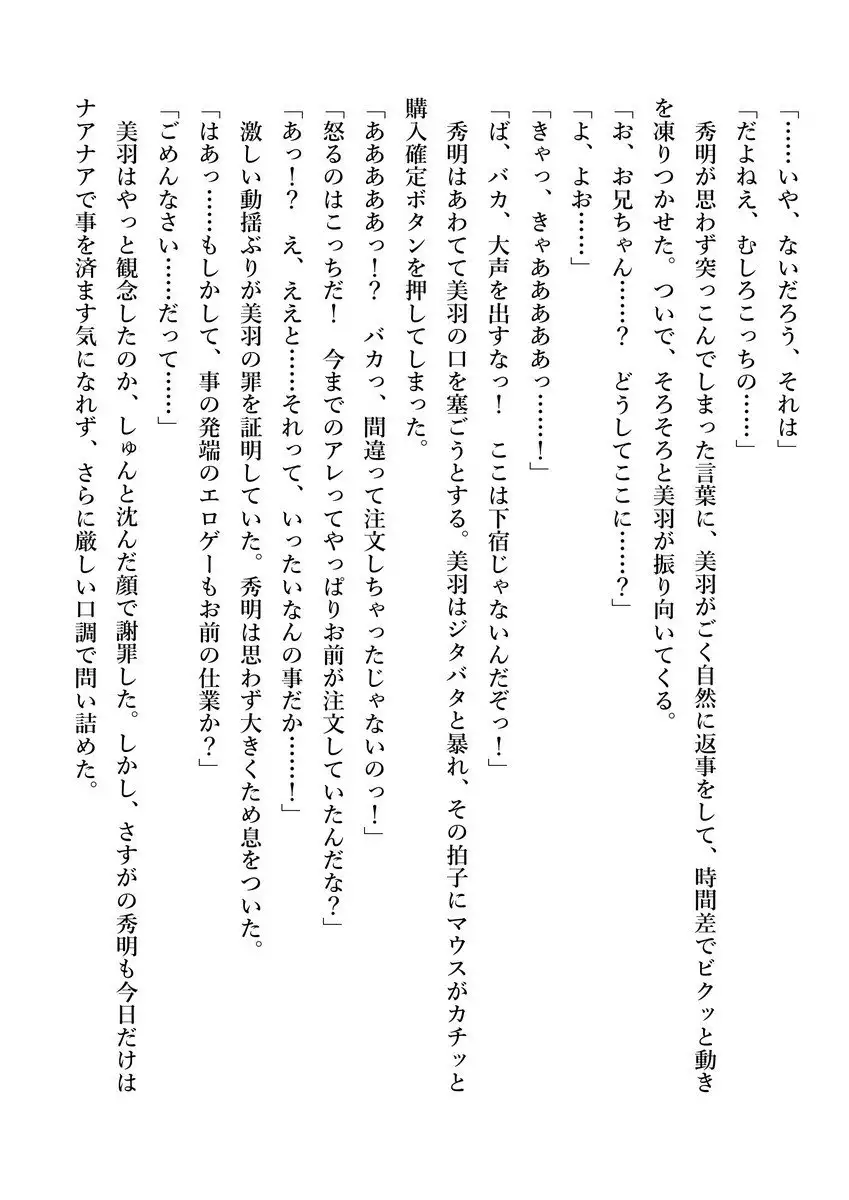 「……いや、ないだろう、それは」
「だよねえ、むしろこっちの……」
　秀明が思わず突っこんでしまった言葉に、美羽がごく自然に返事をして、時間差でビクッと動き
を凍りつかせた。ついで、そろそろと美羽が振り向いてくる。
「お、お兄ちゃん……？　どうしてここに……？」
「よ、よお……」
「きゃっ、きゃあああああっ……！」
「ば、バカ、大声を出すなっ！　ここは下宿じゃないんだぞっ！」
　秀明はあわてて美羽の口を塞ごうとする。美羽はジタバタと暴れ、その拍子にマウスがカチッと
購入確定ボタンを押してしまった。
「ああああああっ！？　バカっ、間違って注文しちゃったじゃないのっ！」
「怒るのはこっちだ！　今までのアレってやっぱりお前が注文していたんだな？」
「あっ！？　え、ええと……それって、いったいなんの事だか……！」
　激しい動揺ぶりが美羽の罪を証明していた。秀明は思わず大きくため息をついた。
「はあっ……もしかして、事の発端のエロゲーもお前の仕業か？」
「ごめんなさい……だって……」
　美羽はやっと観念したのか、しゅんと沈んだ顔で謝罪した。しかし、さすがの秀明も今日だけは
ナアナアで事を済ます気になれず、さらに厳しい口調で問い詰めた。